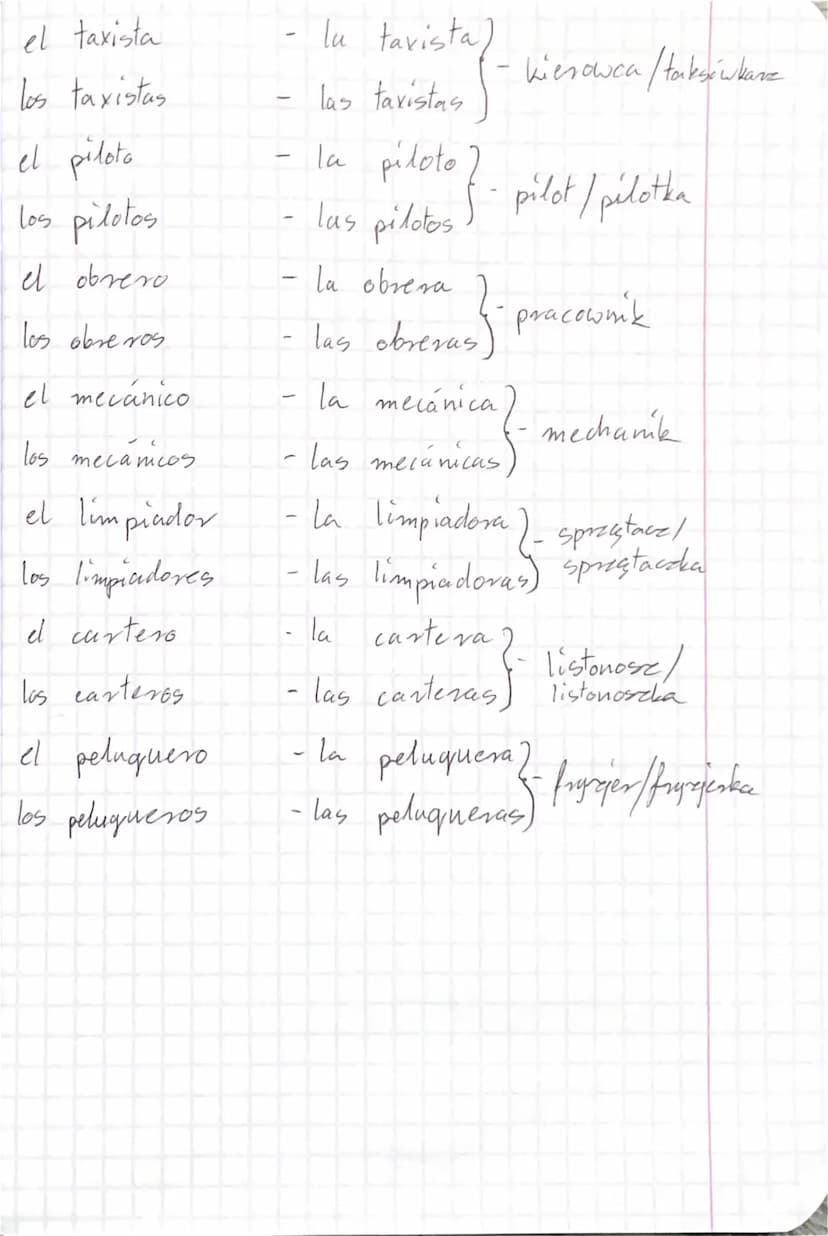 el taxista - la taxista
- kierowca/taksówkarz
los taxistas - las taxistas
el piloto - la piloto
- pilot/pilotka
los pilotos - las pilotos
el obrero - la obrera
- pracownik
los obreros - las obreras
el mecánico - la mecánica
- mechanik
los mecánicos - las mecánicas
el limpiador - la limpiadora
- sprzątacz/
los limpiadores - las limpiadoras
sprzątaczka
el cartero - la cartera
- listonosz/
los carteros - las carteras
listonoszka
el peluquero - la peluquera
- fryzjer/fryzjerka
los peluqueros - las peluqueras